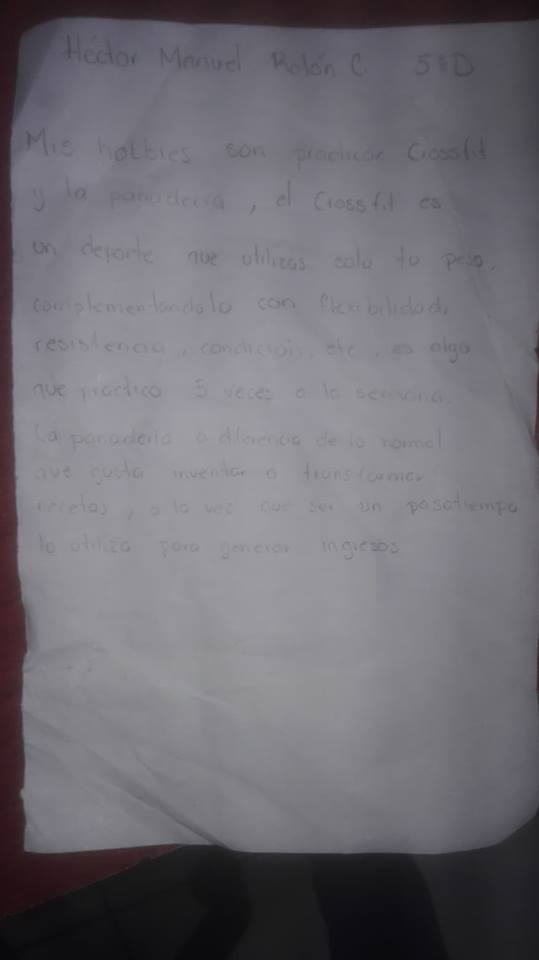 Héctor Manuel Rolón C. 5°D
Mis hobbies son practicar Crossfit
y la panadería, el Crossfit es
un deporte que utilizas solo tu peso,
complementandolo con flexibilidad,
resistencia, condición, etc, es algo
que practico 5 veces a la semana.
La panadería a diferencia de lo normal
me gusta inventar o transformar
recetas, a la vez que ser un pasatiempo
lo utilizo para generar ingresos